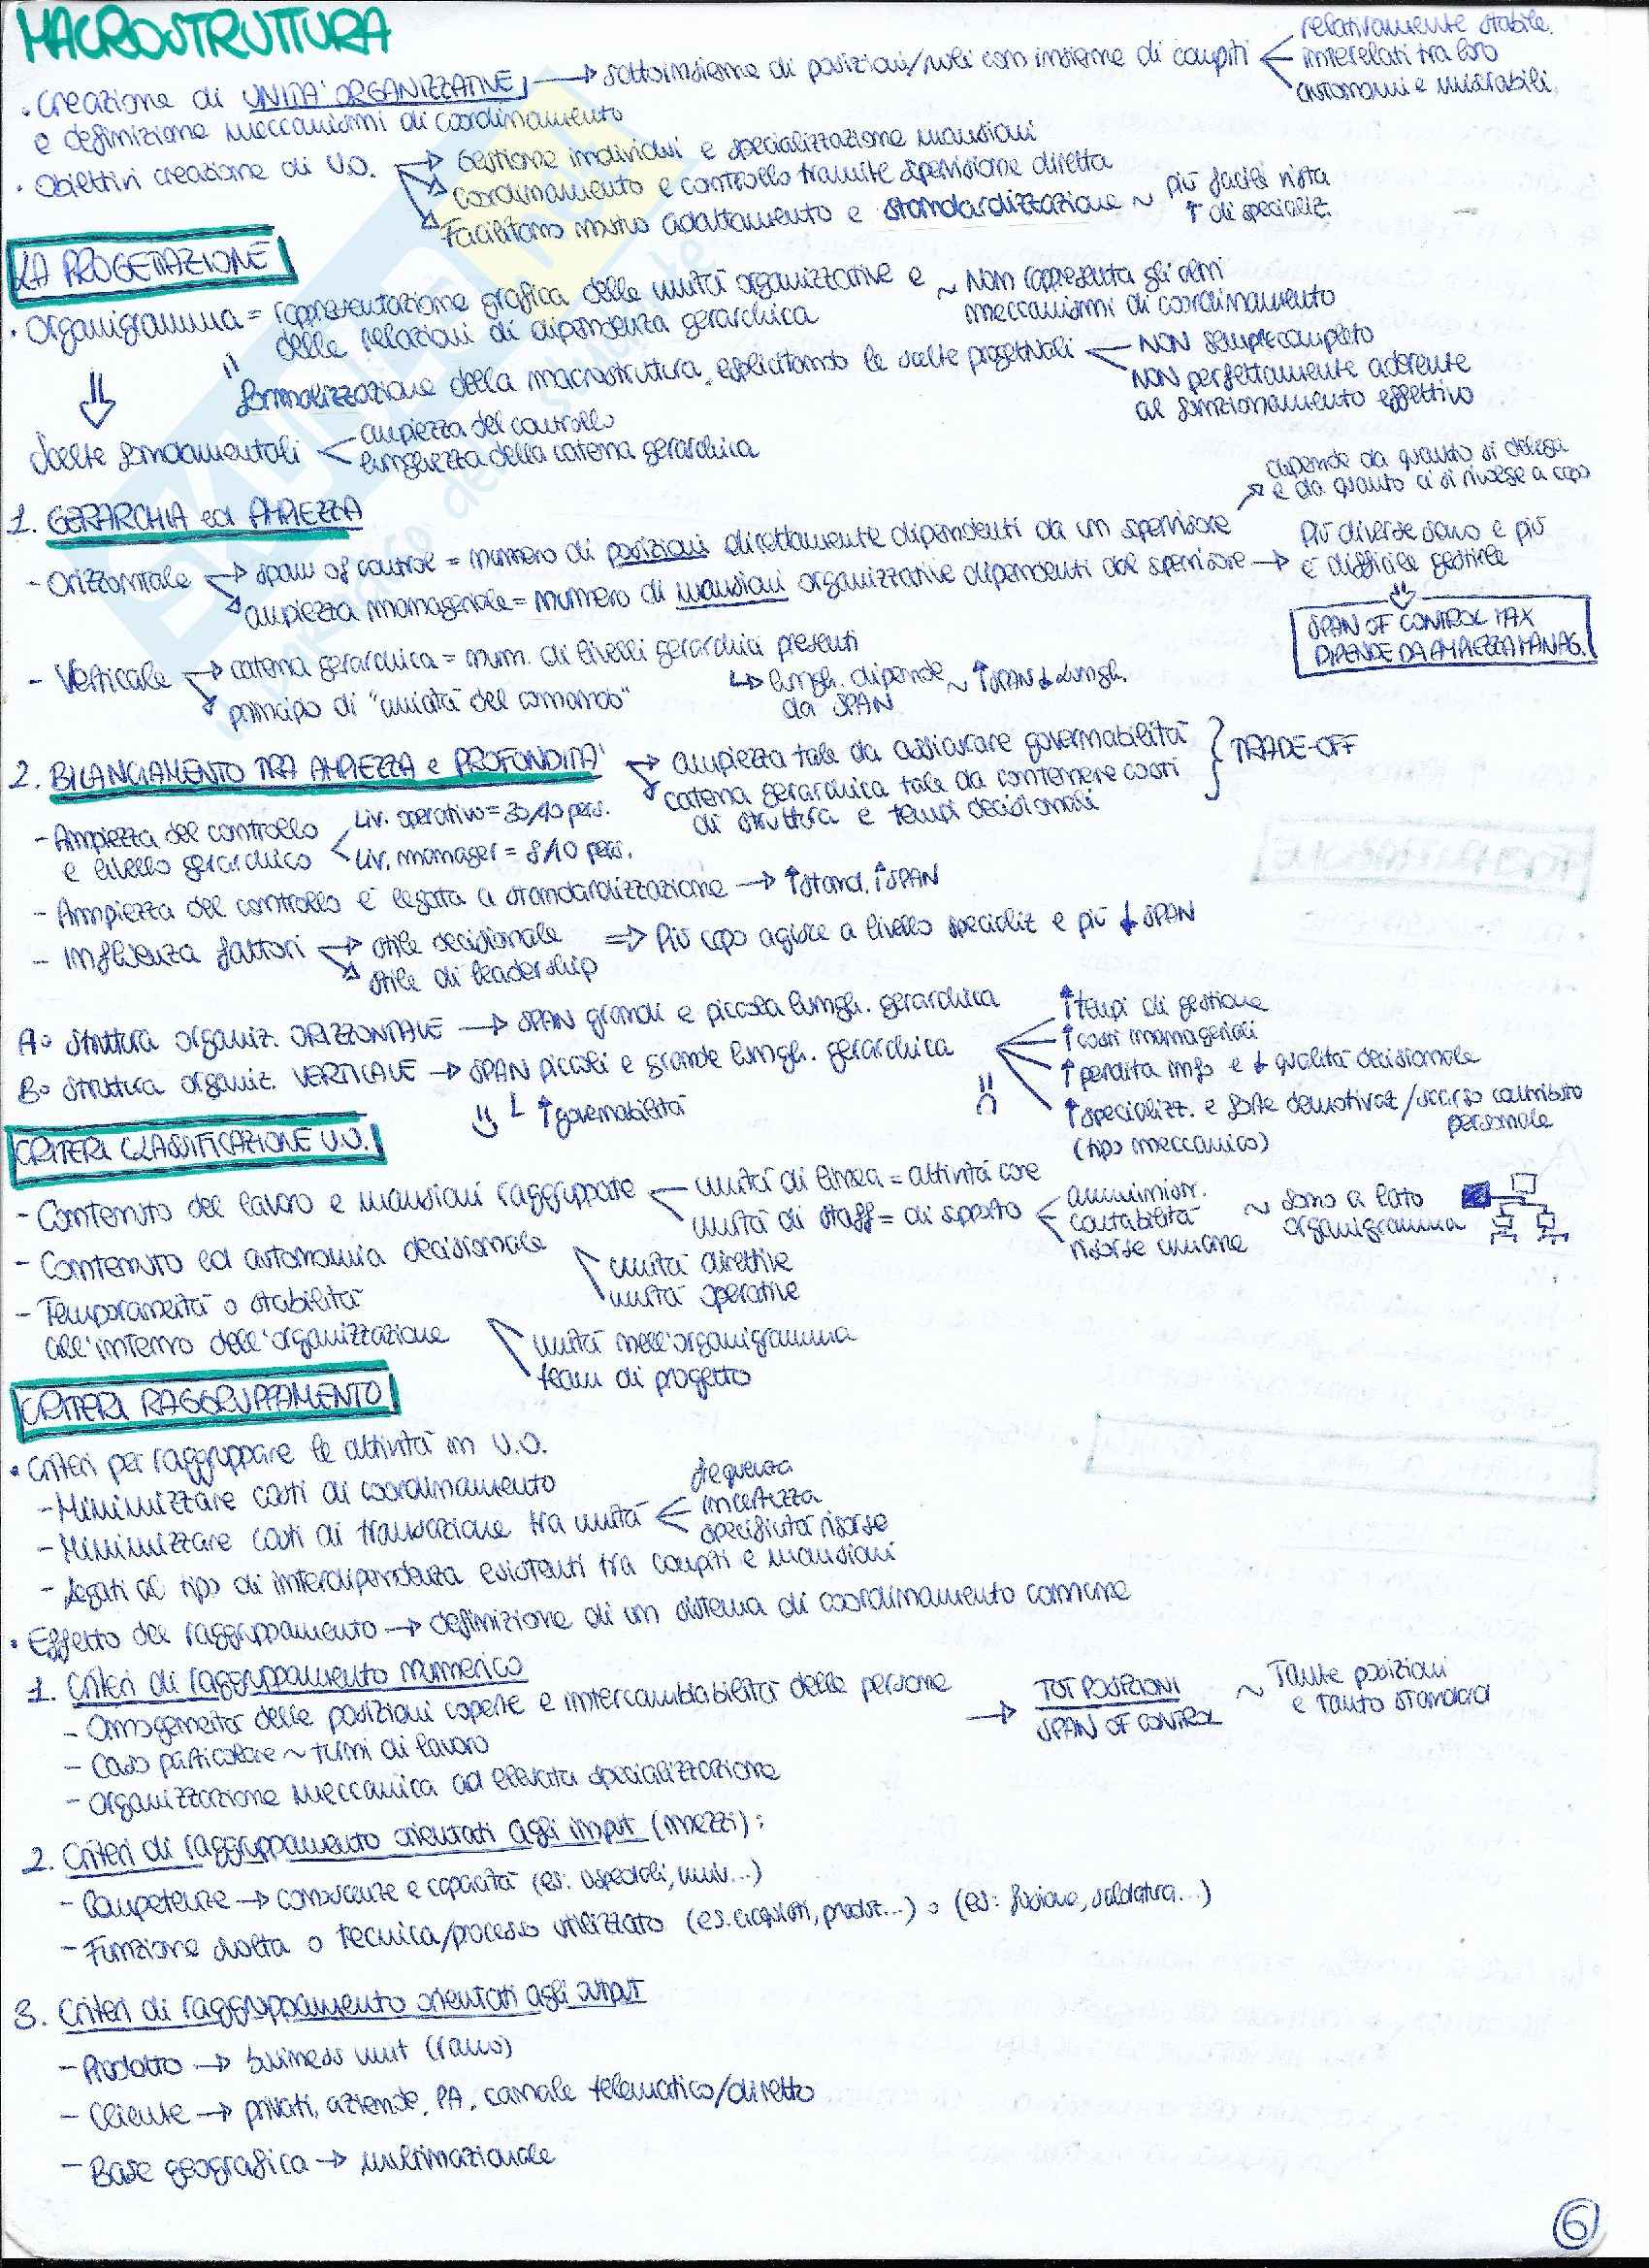 MACROSTRUTTURA
• Creazione di UNITÀ ORGANIZZATIVE → sottoinsieme di posizioni/ruoli con insieme di compiti
relativamente stabile
interrelati tra loro
autonomi e misurabili
e definizione meccanismi di coordinamento
• Obiettivi creazione di U.O.
→ Gestione individui e specializzazione mansioni
→ Coordinamento e controllo tramite spervisione diretta
→ Facilitano mutuo adattamento e standardizzazione ~ più facili vista
↑ di specializ.
LA PROGETTAZIONE
• Organigramma = rappresentazione grafica delle unità organizzative e
delle relazioni di dipendenza gerarchica
~ Non rappresenta gli altri
meccanismi di coordinamento
formalizzazione della macrostruttura, esplicitando le scelte progettuali
NON sempre completo
NON perfettamente aderente
al funzionamento effettivo
⇓
Scelte fondamentali
ampiezza del controllo
lunghezza della catena gerarchica
1. GERARCHIA ed AMPIEZZA
- Orizzontale → span of control = numero di posizioni direttamente dipendenti da un spervisore
dipende da quanto si delega
e da quanto ci si rivolge a capo
→ ampiezza manageriale = numero di mansioni organizzative dipendenti dal spervisore →
più diverse sono e più
è difficile gestirle
⇓
SPAN OF CONTROL MAX
DIPENDE DA AMPIEZZA MANAG.
- Verticale → catena gerarchica = num. di livelli gerarchici presenti
↳ lungh. dipende ~ ↑SPAN ↓Lungh.
da SPAN
→ principio di "unicità del comando"
2. BILANCIAMENTO TRA AMPIEZZA e PROFONDITÀ
→ ampiezza tale da assicurare governabilità
→ catena gerarchica tale da contenere costi
di struttura e tempi decisionali
} TRADE-OFF
- Ampiezza del controllo
e livello gerarchico
Liv. operativo = 30/40 pers.
Liv. manager = 8/10 pers.
- Ampiezza del controllo è legata a standardizzazione → ↑stand. ↑SPAN
- Influenza fattori → stile decisionale
→ stile di leadership
⇒ Più capo agisce a livello specialist e più ↓ SPAN
A. Struttura organiz. ORIZZONTALE → SPAN grandi e piccola lungh. gerarchica
B. Struttura organiz. VERTICALE → SPAN piccoli e grande lungh. gerarchica
↑governabilità
↑tempi di gestione
↑costi manageriali
↑perdita info e ↓ qualità decisionale
↑specializz. e forte demotivaz/scarso contributo
personale
(tipo meccanico)
CRITERI CLASSIFICAZIONE U.O.
- Contenuto del lavoro e mansioni raggruppate
unità di linea = attività core
unità di staff = di sporto
amministr.
contabilità
risorse umane
~ sono a lato
organigramma
- Contenuto ed autonomia decisionale
unità direttive
unità operative
- Temporaneità o stabilità
all'interno dell'organizzazione
unità nell'organigramma
team di progetto
CRITERI RAGGRUPPAMENTO
• Criteri per raggruppare le attività in U.O.
- Minimizzare costi di coordinamento
- Minimizzare costi di transazione tra unità
frequenza
incertezza
specificità risorse
- Legati al tipo di interdipendenza esistenti tra compiti e mansioni
• Effetto del raggruppamento → definizione di un sistema di coordinamento comune
1. Criteri di raggruppamento numerico
- Omogeneità delle posizioni coperte e intercambiabilità delle persone
→ TOT POSIZIONI
SPAN OF CONTROL
~ Tante posizioni
e tanto standard
- Caso particolare ~ turni di lavoro
- Organizzazione meccanica ad elevata specializzazione
2. Criteri di raggruppamento orientati agli input (mezzi):
- Competenze → conoscenze e capacità (es: ospedali, univ...)
- Funzione svolta o tecnica/processo utilizzato (es. acquisti, produz...) o (es: fusione, saldatura...)
3. Criteri di raggruppamento orientati agli output
- Prodotto → business unit (ramo)
- Cliente → privati, aziende, PA, canale telematico/diretto
- Base geografica → multinazionale
6